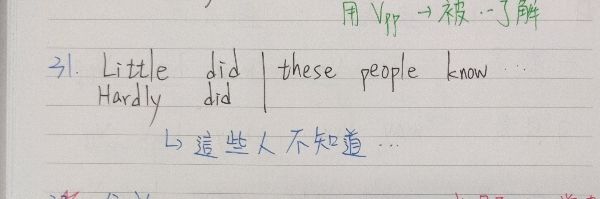 用 Vpp → 被…了解
31. Little did | these people know …
Hardly did
↳ 這些人不知道 …